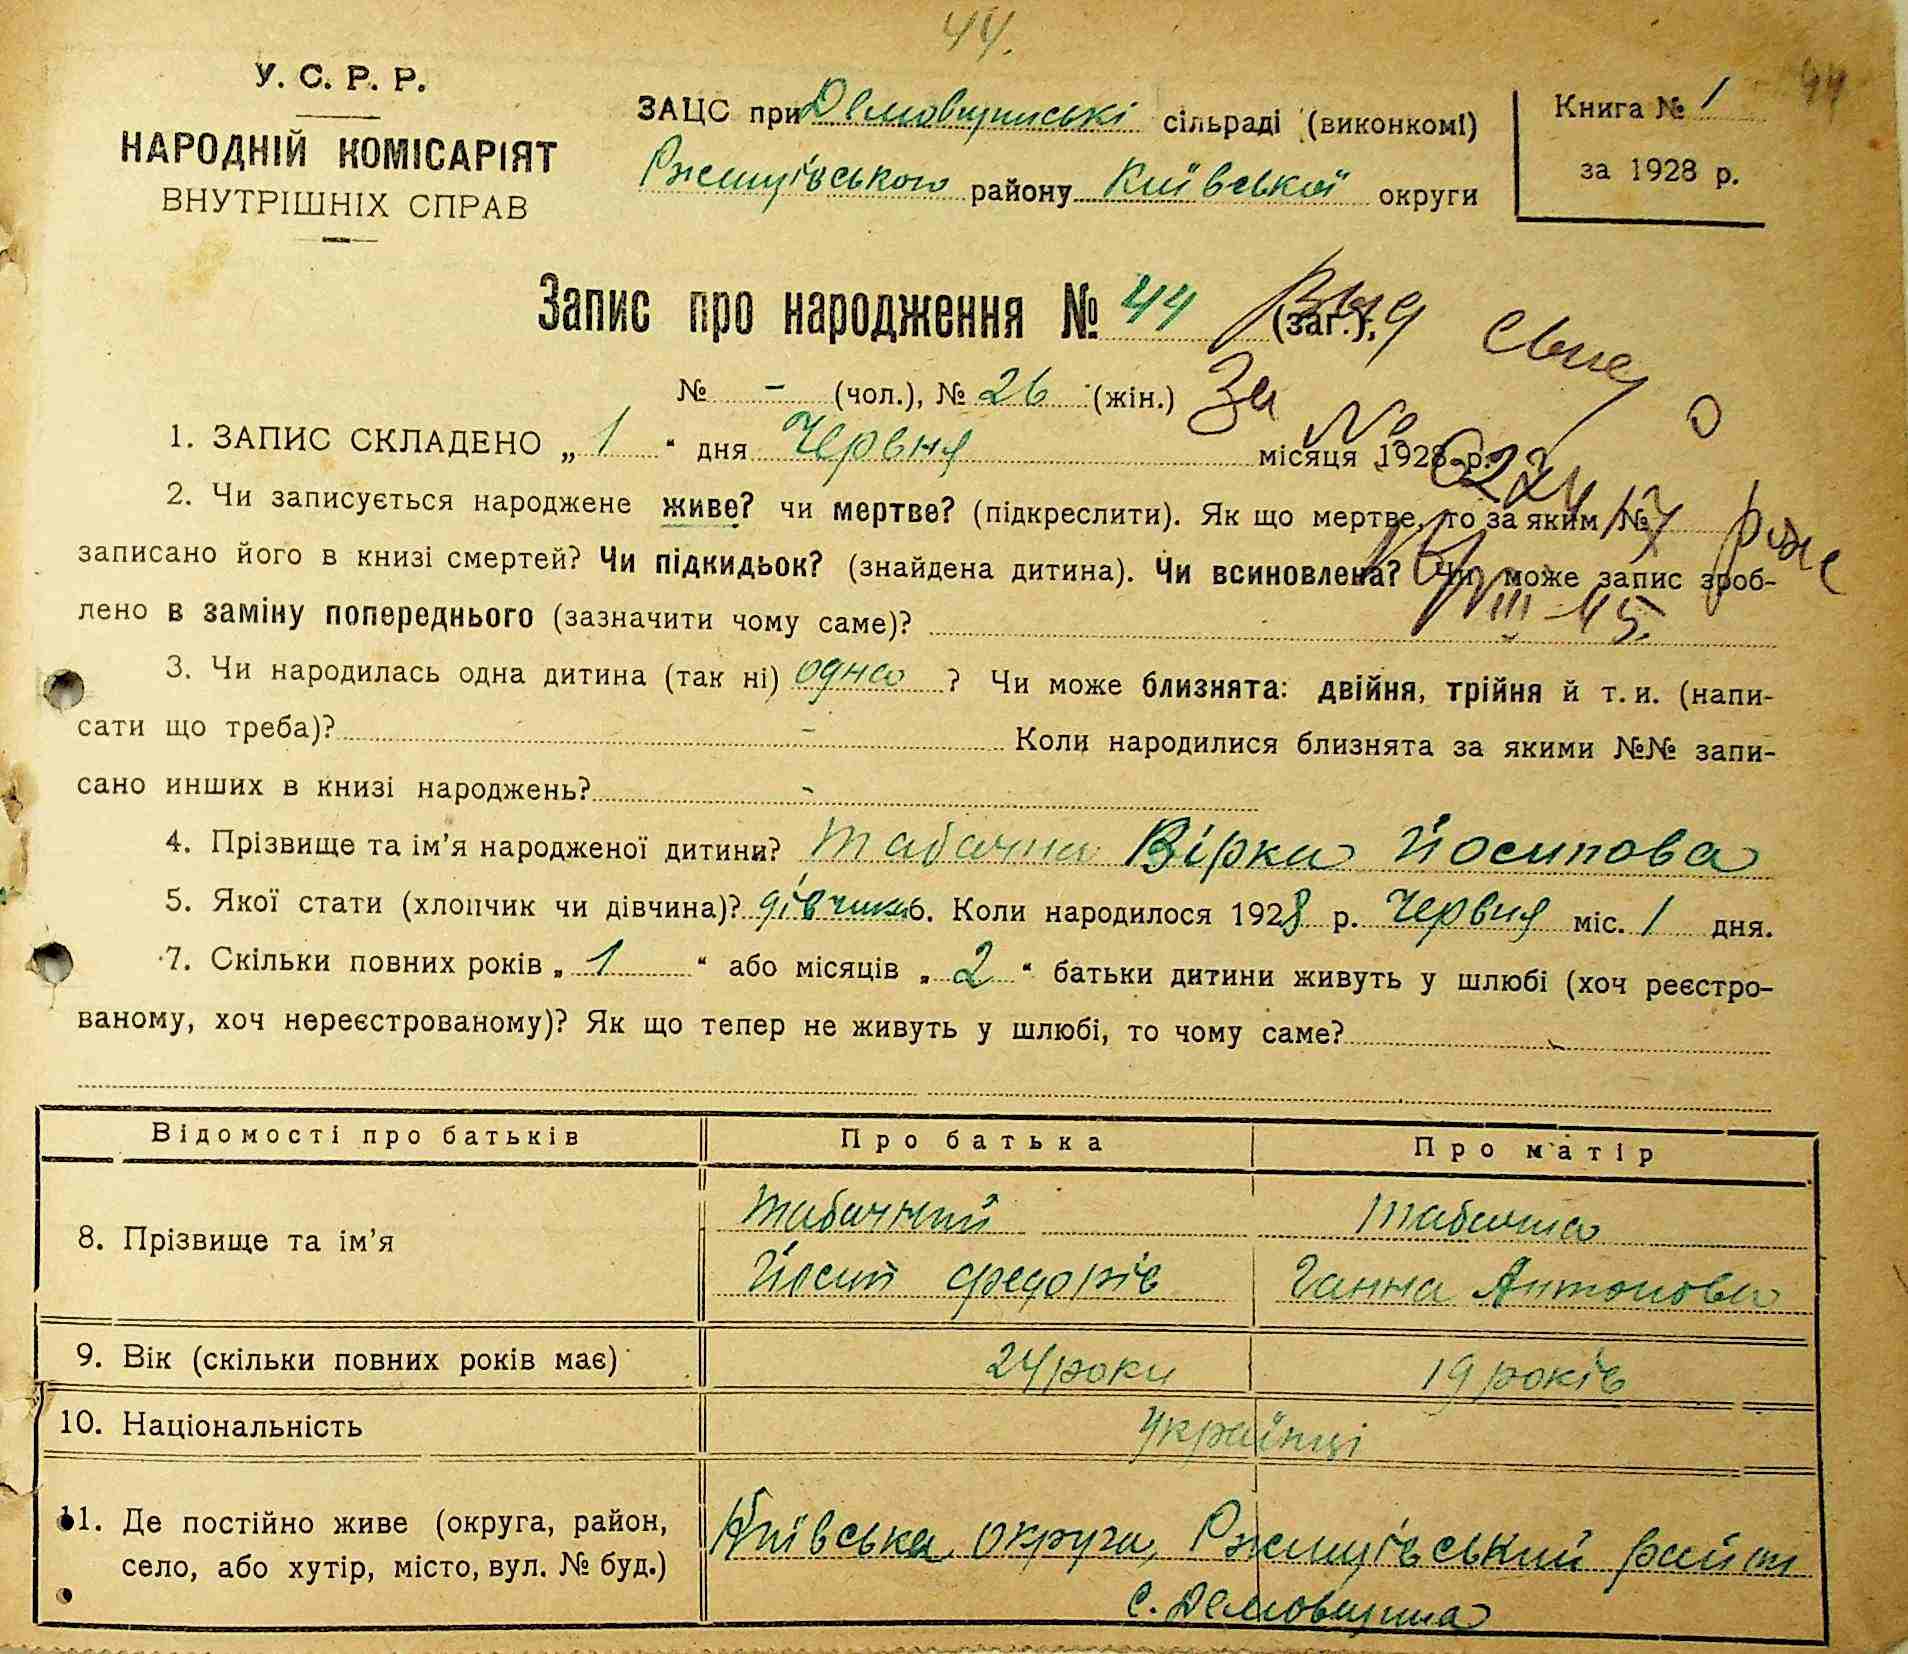 44.
44
У. С. Р. Р.
НАРОДНІЙ КОМІСАРІЯТ
ВНУТРІШНІХ СПРАВ
ЗАЦС при Демовщинські сільраді (виконкомі)
Ржищівського району Київської округи
Книга № 1
за 1928 р.
Запис про народження № 44 (заг.),
№ - (чол.), № 26 (жін.)
За №
1. ЗАПИС СКЛАДЕНО „ 1 “ дня Червня місяця 1928 р.
2. Чи записується народжене живе? чи мертве? (підкреслити). Як що мертве, то за яким №
записано його в книзі смертей? Чи підкидьок? (знайдена дитина). Чи всиновлена? Чи може запис зроб-
лено в заміну попереднього (зазначити чому саме)?
3. Чи народилась одна дитина (так ні) одна ? Чи може близнята: двійня, трійня й т. и. (напи-
сати що треба)? - Коли народилися близнята за якими №№ запи-
сано инших в книзі народжень? -
4. Прізвище та ім’я народженої дитини? Табачна Вірка Йосипова
5. Якої стати (хлопчик чи дівчина)? дівчина 6. Коли народилося 1928 р. Червня міс. 1 дня.
7. Скільки повних років „ 1 “ або місяців „ 2 “ батьки дитини живуть у шлюбі (хоч реєстро-
ваному, хоч нереєстрованому)? Як що тепер не живуть у шлюбі, то чому саме?
Відомості про батьків Про батька Про матір
8. Прізвище та ім’я
Табачний Табачна
Йосип Федорів Ганна Антонова
9. Вік (скільки повних років має) 24 роки 19 років
10. Національність Українці
11. Де постійно живе (округа, район,
село, або хутір, місто, вул. № буд.)
Київська округа, Ржищівський район
с. Демовщина